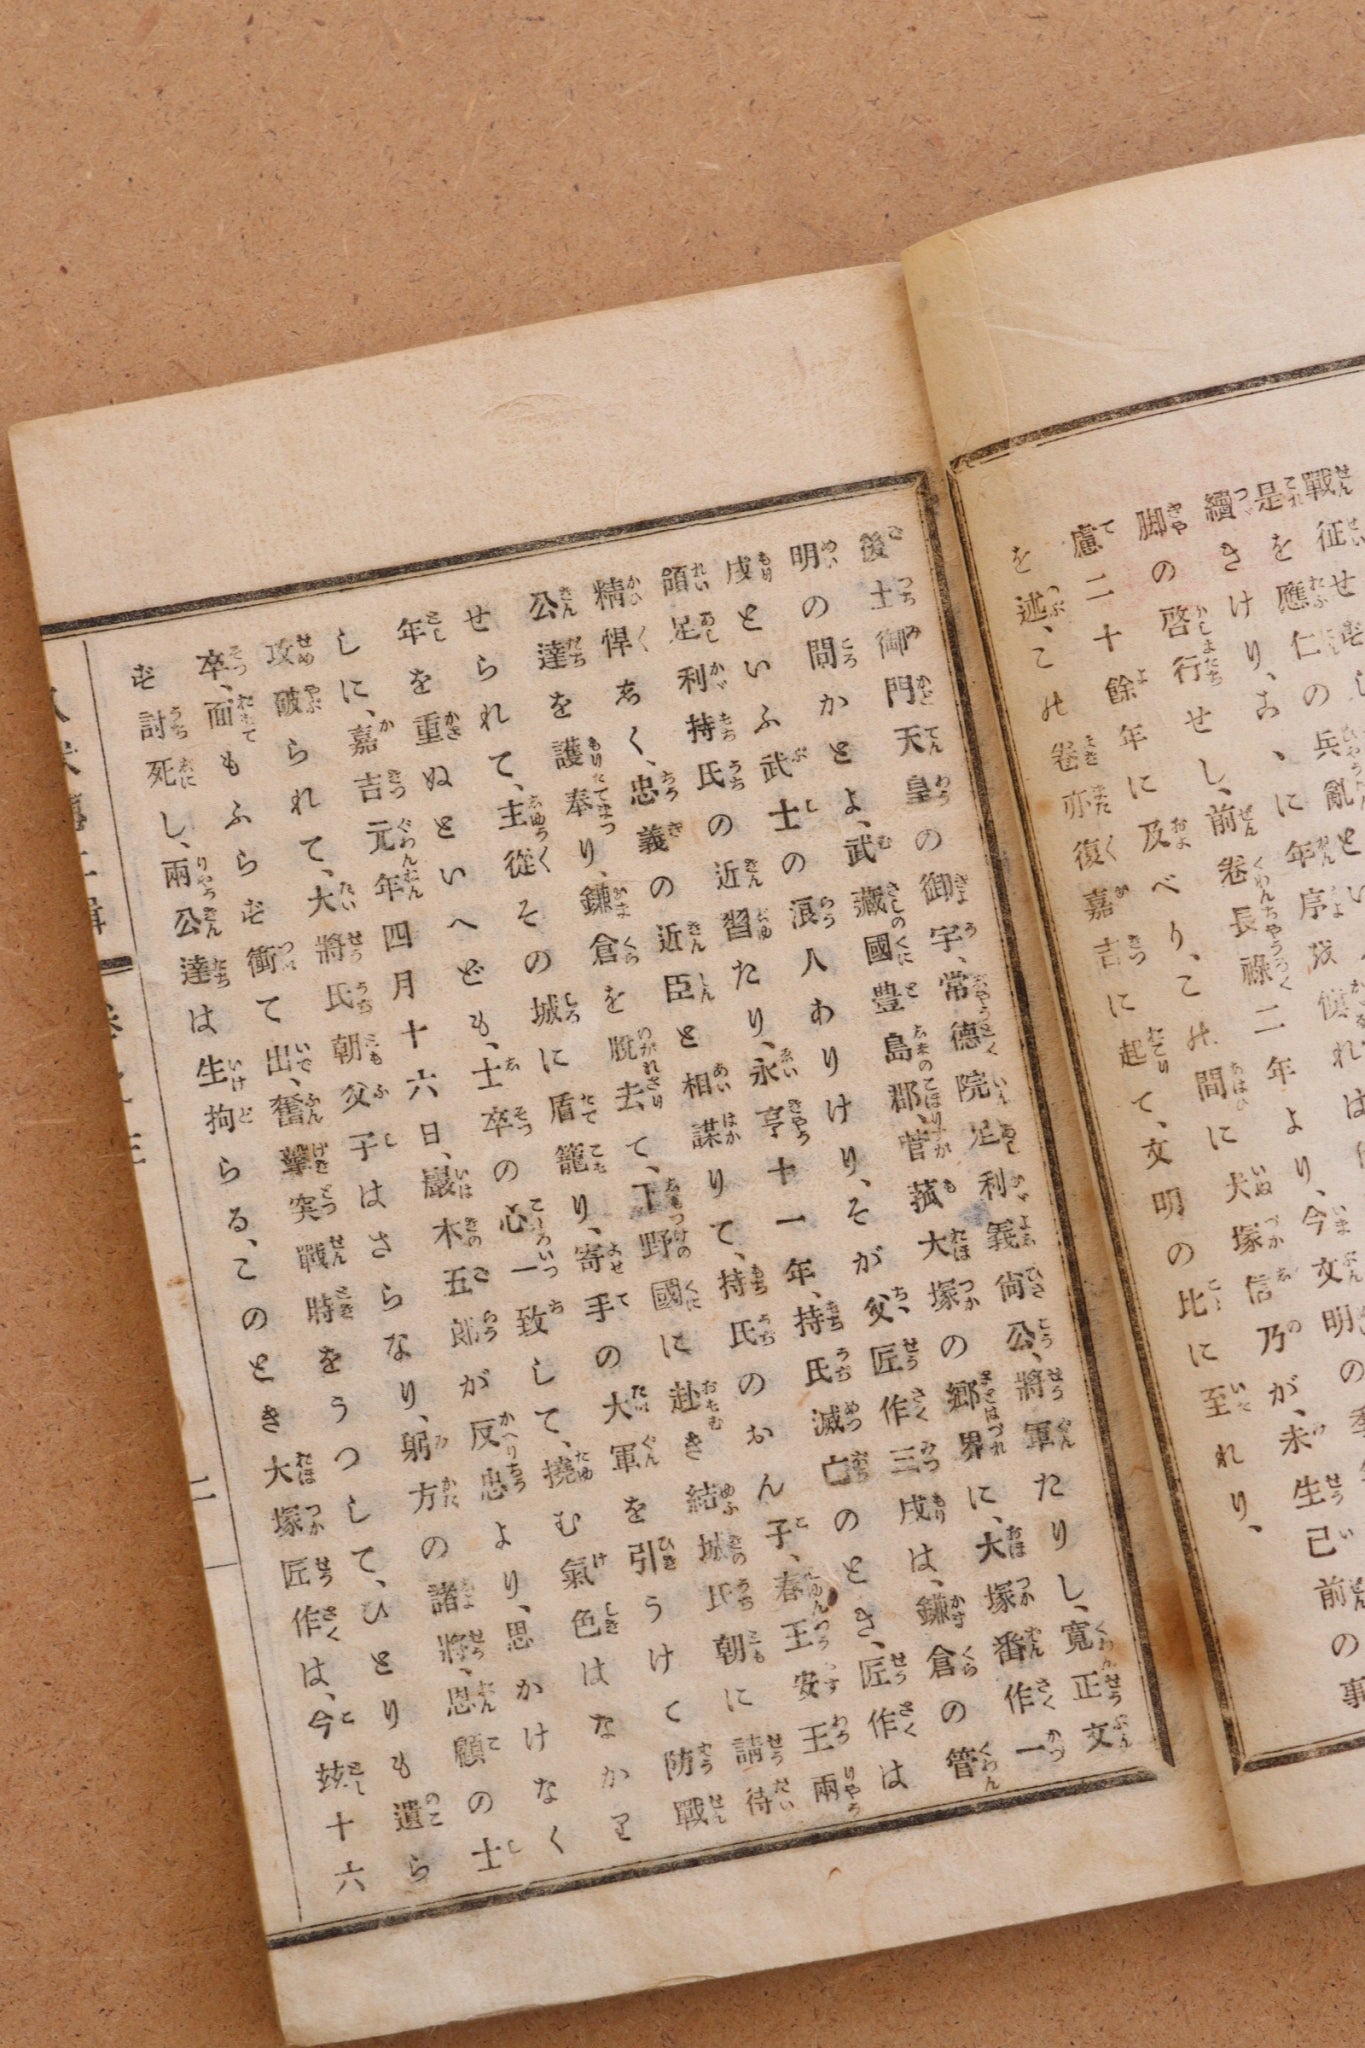 戰征せずといふ
是を應仁の兵亂とい
續きけり、こゝに年序
脚の啓行せし、前卷長祿二年より、今文明の
慮二十餘年に及べり、この間に犬塚信乃が、未生已前の事
を述、この卷亦復嘉吉に起て、文明の比に至れり、
後土御門天皇の御宇、常德院足利義尙公、將軍たりし、寛正文
明の間かとよ、武藏國豊島郡、菅菰大塚の鄕界に、大塚番作一
戍といふ武士の浪人ありけり、そが父匠作三戍は、鎌倉の管
領足利持氏の近習たり、永享十一年、持氏滅亡のとき、匠作は
精悍しく、忠義の近臣と相謀りて、持氏のおん子、春王安王兩
公達を護奉り、鎌倉を脱去て、下野國に赴き結城氏朝に請待
せられて、主從その城に盾籠り、寄手の大軍を引うけて防戰
年を重ぬといへども、士卒の心一致して、撓む氣色はなかり
しに、嘉吉元年四月十六日、巖木五郎が反忠より、思かけなく
攻破られて、大將氏朝父子はさらなり、躬方の諸將、恩顧の士
卒、面もふらず衝て出、奮擊突戰時をうつして、ひとりも遺ら
ず討死し、兩公達は生拘らる、このとき大塚匠作は、今玆十六
二